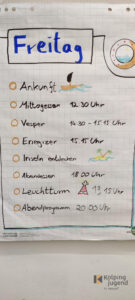 Freitag
Ankunft
Mittagessen 12.30 Uhr
Vesper 14:30 - 15:15 Uhr
Energizer 15.15 Uhr
Inseln entdecken
Abendessen 18:00 Uhr
Leuchtturm 19.15 Uhr
Abendprogramm 20:00 Uhr
Kolping
jugend